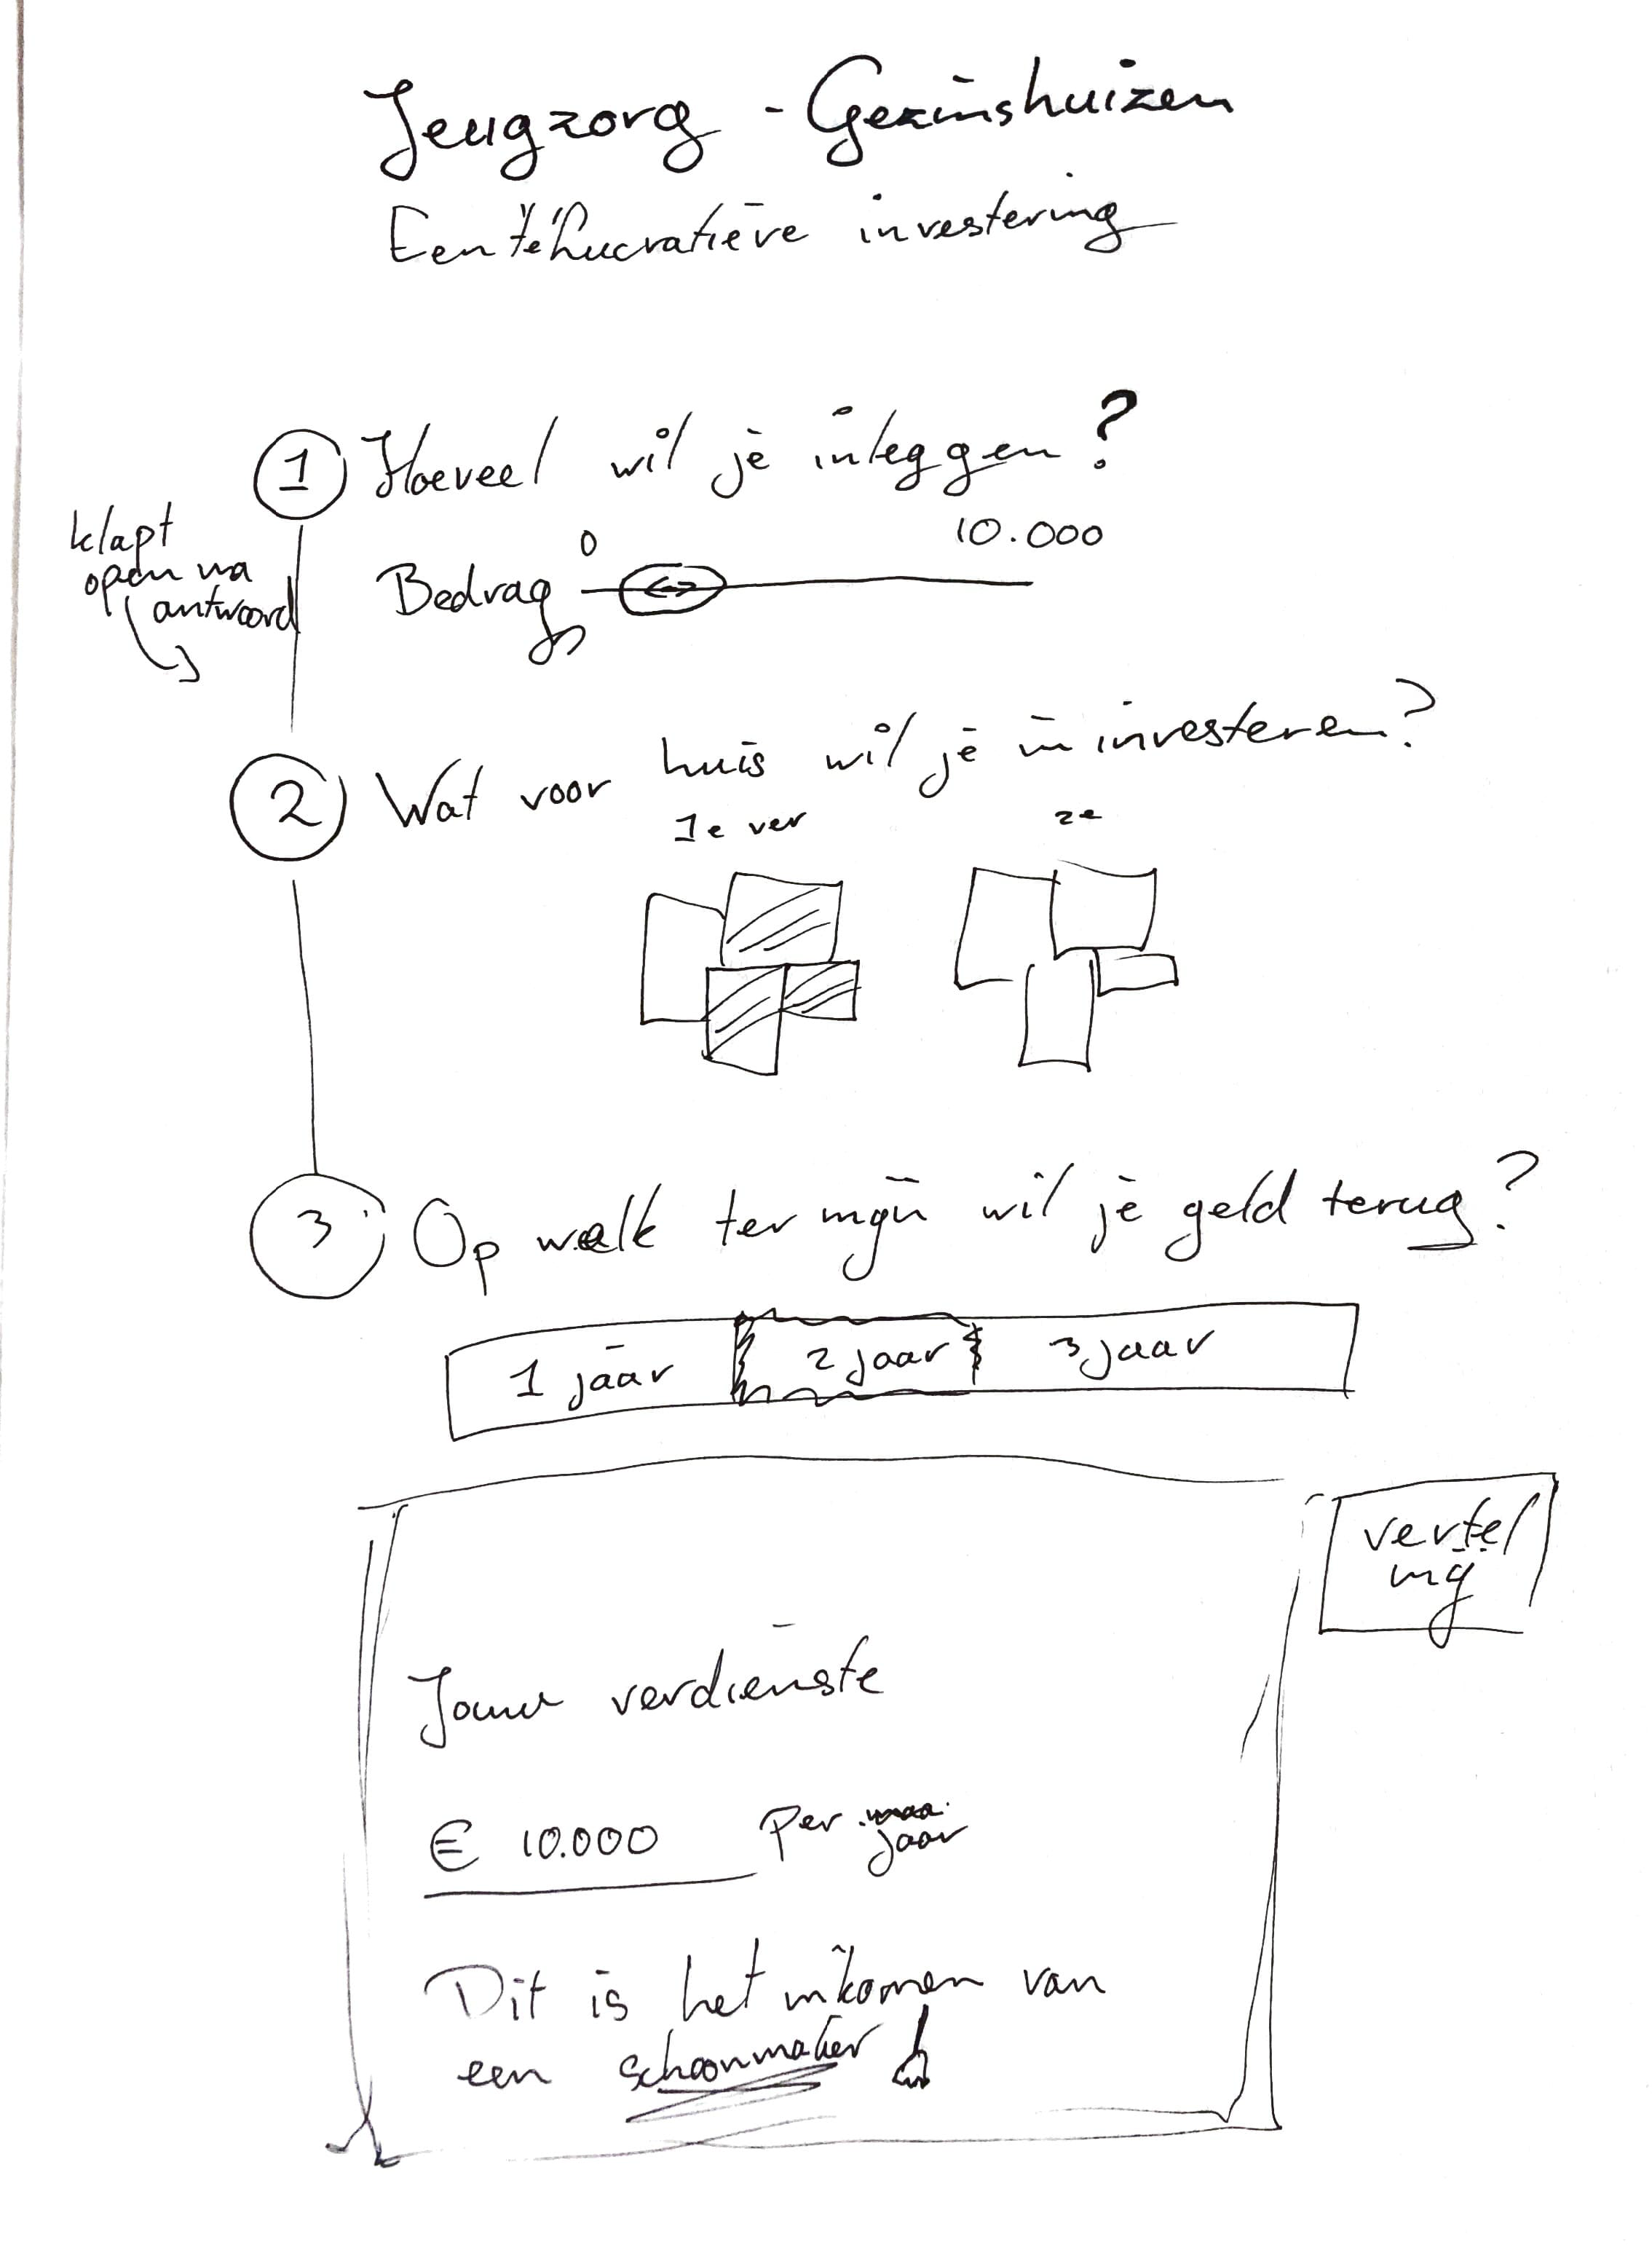 Jeugzorg - Gezinshuizen
Een "té" lucratieve investering
1 Hoeveel wil je inleggen?
klapt
open na
antwoord
0 10.000
Bedrag
2 Wat voor huis wil je in investeren?
1e ver 2e
3 Op welk termijn wil je geld terug?
1 jaar 2 jaar 3 jaar
vertel
mij
Jouw verdienste
€ 10.000 per
jaar
Dit is het inkomen van
een schoonmaker